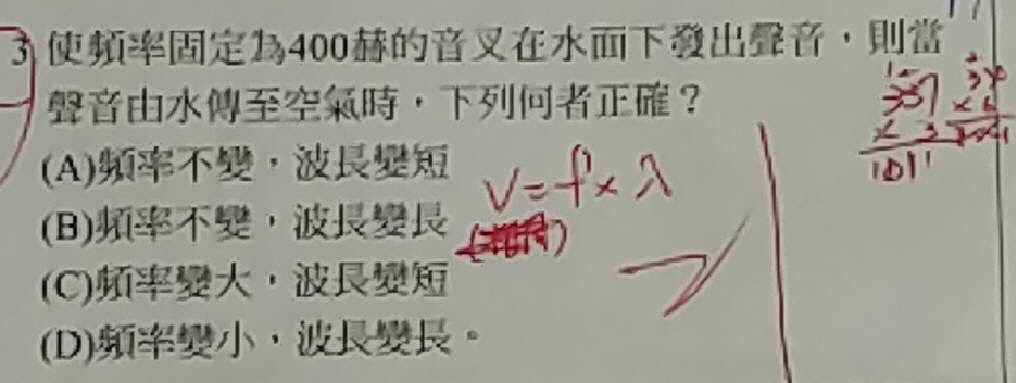 3 使頻率固定為400赫的音叉在水面下發出聲音，則當
聲音由水傳至空氣時，下列何者正確？
(A)頻率不變，波長變短
(B)頻率不變，波長變長
(C)頻率變大，波長變短
(D)頻率變小，波長變長。
V=f×λ
337
× 3
1011